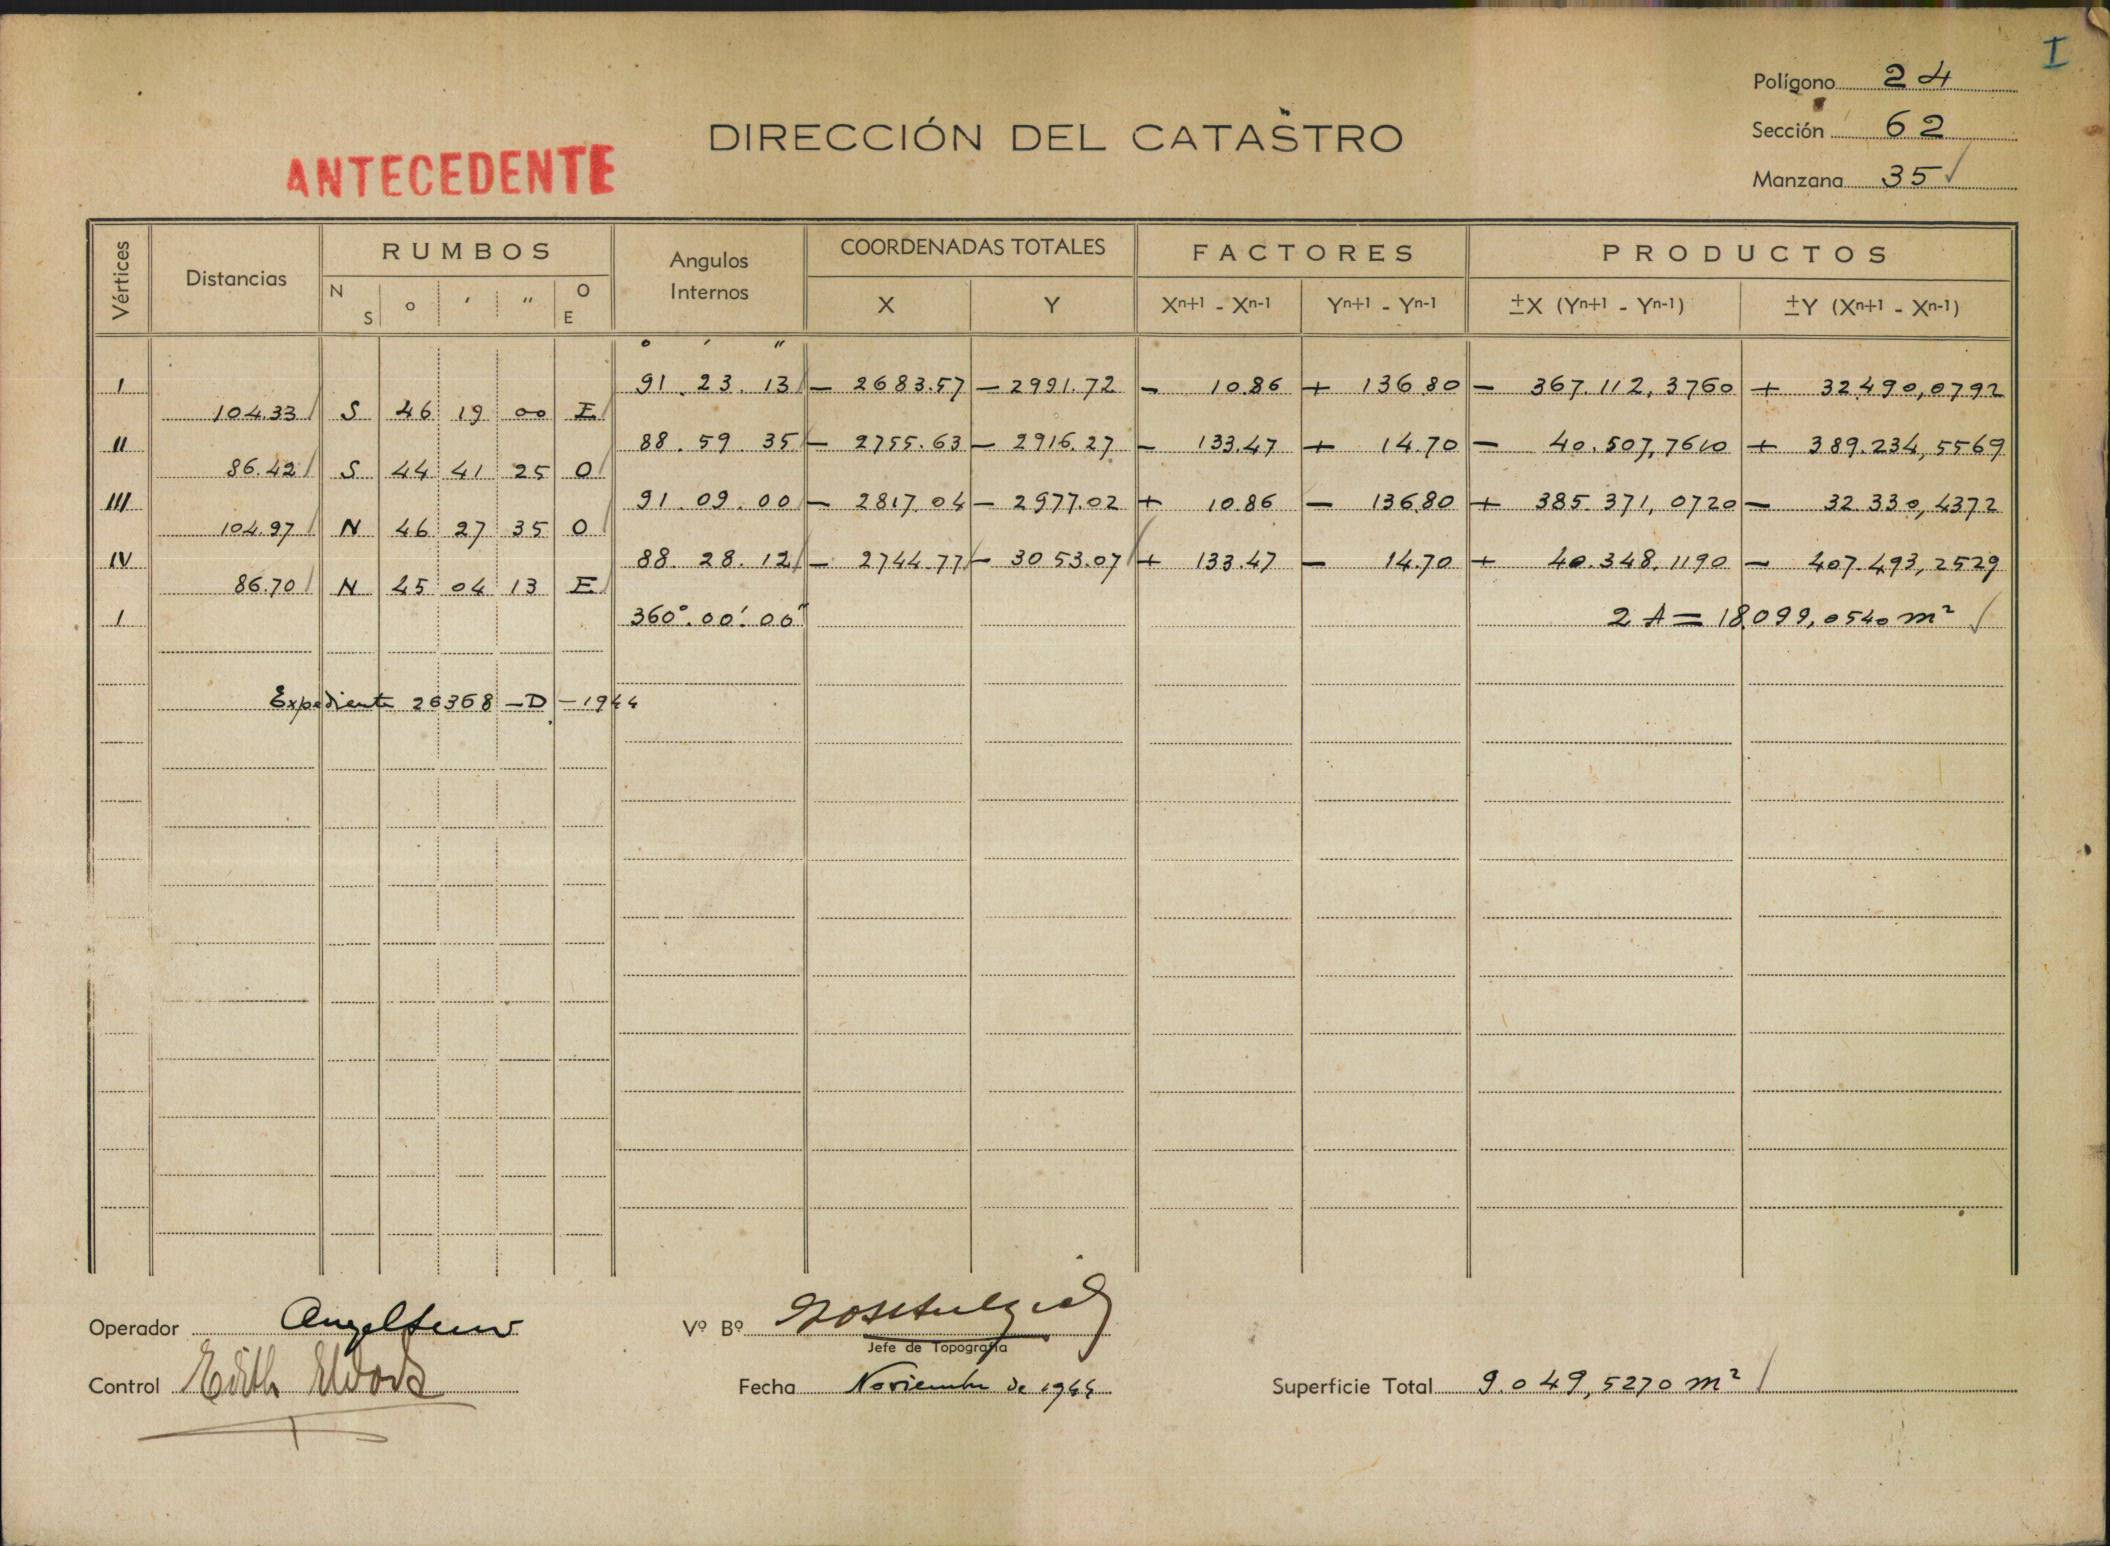 I
Polígono 24
DIRECCIÓN DEL CATASTRO
Sección 62
ANTECEDENTE
Manzana 35 ✓
Vértices Distancias RUMBOS Angulos Internos COORDENADAS TOTALES FACTORES PRODUCTOS
N S o ′ ″ O E X Y Xn+1 - Xn-1 Yn+1 - Yn-1 ±X (Yn+1 - Yn-1) ±Y (Xn+1 - Xn-1)
o ′ ″
I 91. 23. 13 − 2683.57 − 2991.72 − 10.86 + 136.80 − 367.112,3760 + 32.490,0792
104.33 S 46 19 00 E
II 88. 59. 35 − 2755.63 − 2916.27 − 133.47 + 14.70 − 40.507,7610 + 389.234,5569
86.42 S 44 41 25 O
III 91. 09. 00 − 2817.04 − 2977.02 + 10.86 − 136.80 + 385.371,0720 − 32.330,4372
104.97 N 46 27 35 O
IV 88. 28. 12 − 2744.77 − 3053.07 + 133.47 − 14.70 + 40.348.1190 − 407.493,2529
86.70 N 45 04 13 E
I 360°.00′.00″ 2 A = 18.099,0540 m² ✓
Expediente 26368 - D - 1944
Operador
Vº Bº
Jefe de Topografía
Control Edith
Fecha Noviembre de 1944
Superficie Total 9.049,5270 m²